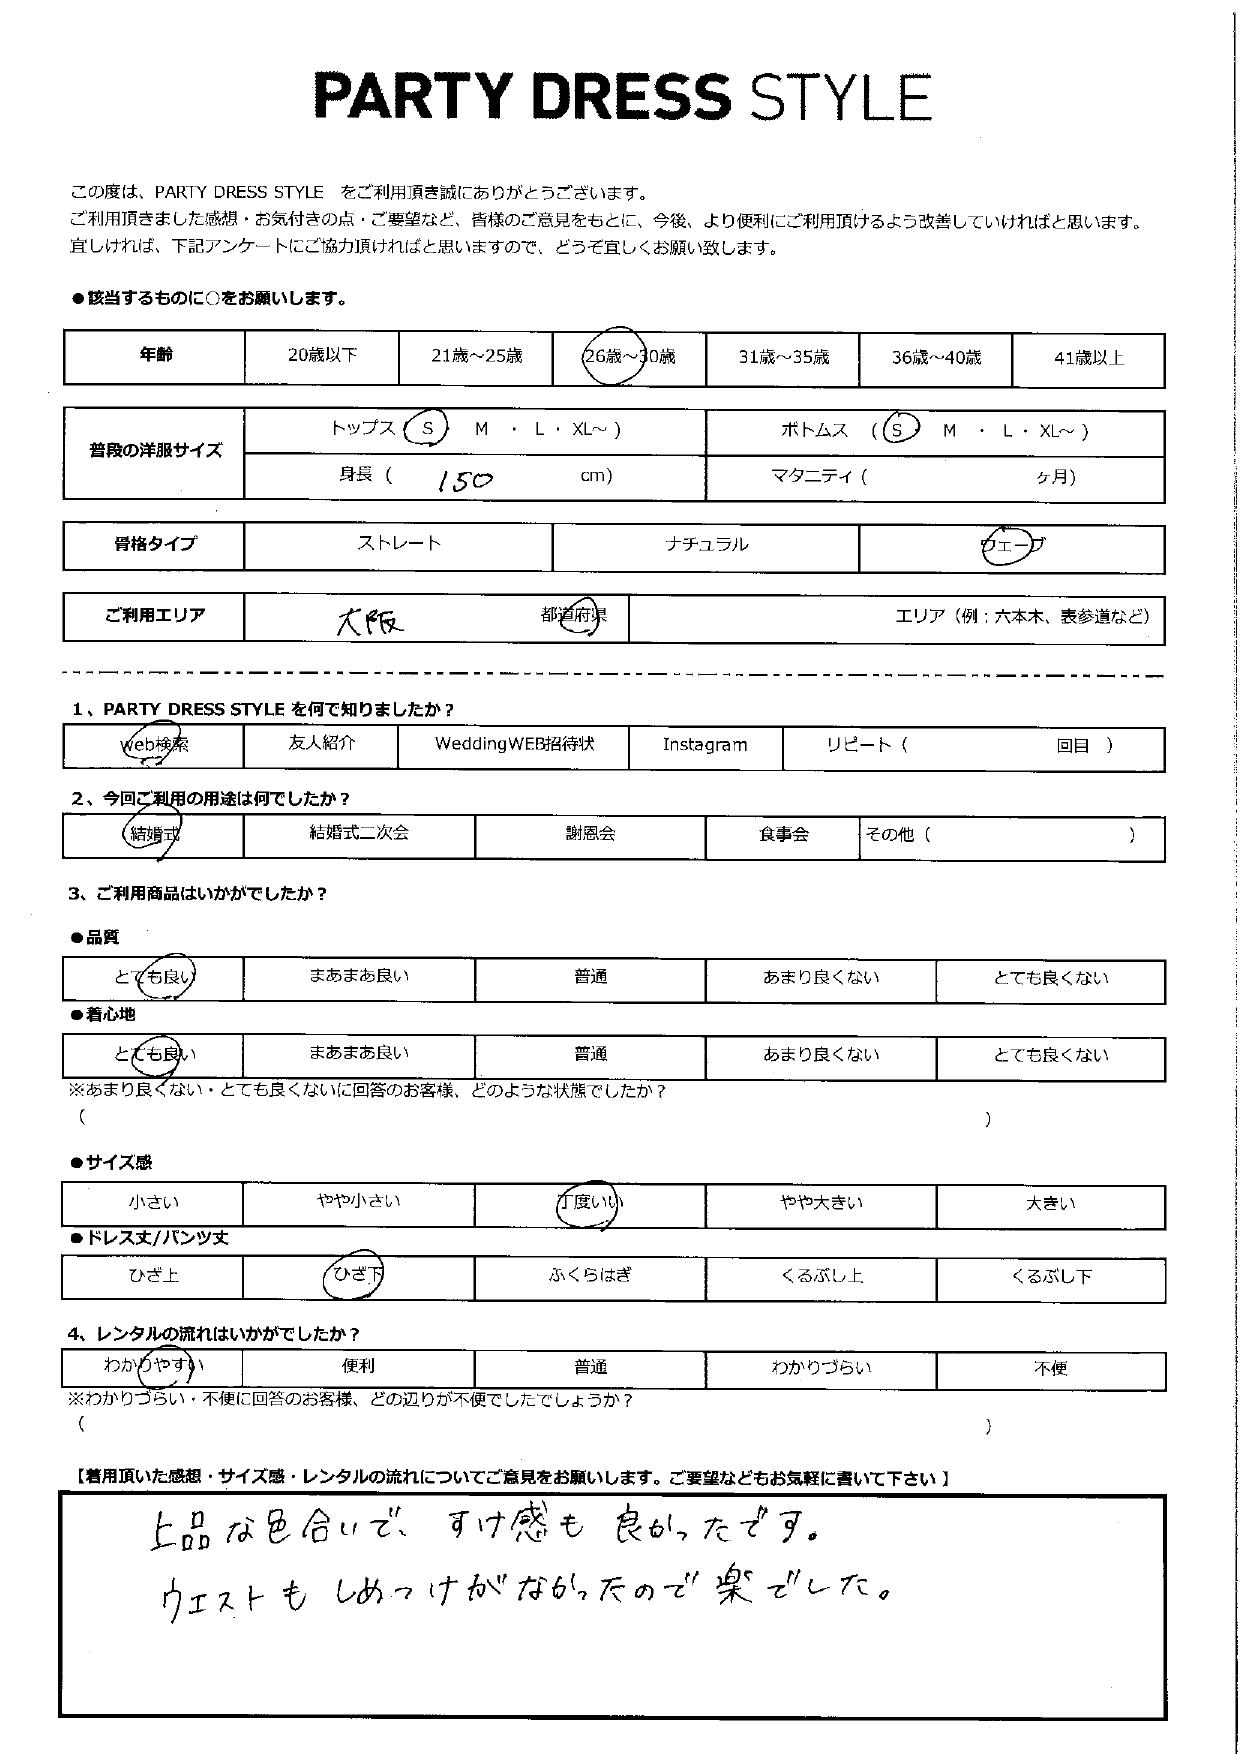 PARTY DRESS STYLE
この度は、PARTY DRESS STYLE をご利用頂き誠にありがとうございます。
ご利用頂きました感想・お気付きの点・ご要望など、皆様のご意見をもとに、今後、より便利にご利用頂けるよう改善していければと思います。
宜しければ、下記アンケートにご協力頂ければと思いますので、どうぞ宜しくお願い致します。
●該当するものに○をお願いします。
年齢 20歳以下 21歳～25歳 26歳～30歳 31歳～35歳 36歳～40歳 41歳以上
普段の洋服サイズ トップス ( S M ・ L ・ XL～ ) ボトムス ( S M ・ L ・ XL～ )
身長 ( 150 cm) マタニティ ( ヶ月)
骨格タイプ ストレート ナチュラル ウェーブ
ご利用エリア 大阪 都道府県 エリア（例：六本木、表参道など）
1、PARTY DRESS STYLE を何で知りましたか？
web検索 友人紹介 WeddingWEB招待状 Instagram リピート ( 回目 )
2、今回ご利用の用途は何でしたか？
結婚式 結婚式二次会 謝恩会 食事会 その他 ( )
3、ご利用商品はいかがでしたか？
●品質
とても良い まあまあ良い 普通 あまり良くない とても良くない
●着心地
とても良い まあまあ良い 普通 あまり良くない とても良くない
※あまり良くない・とても良くないに回答のお客様、どのような状態でしたか？
( )
●サイズ感
小さい やや小さい 丁度いい やや大きい 大きい
●ドレス丈/パンツ丈
ひざ上 ひざ下 ふくらはぎ くるぶし上 くるぶし下
4、レンタルの流れはいかがでしたか？
わかりやすい 便利 普通 わかりづらい 不便
※わかりづらい・不便に回答のお客様、どの辺りが不便でしたでしょうか？
( )
【着用頂いた感想・サイズ感・レンタルの流れについてご意見をお願いします。ご要望などもお気軽に書いて下さい 】
上品な色合いで、すけ感も良かったです。
ウエストもしめつけがなかったので楽でした。